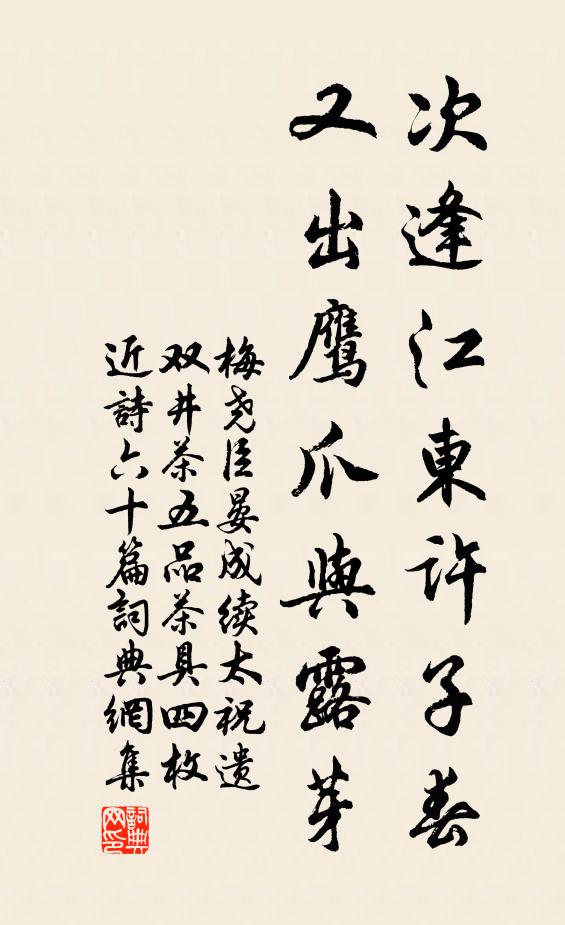 次逢江東許子春
又出鷹爪與露芽
梅尧臣晏成续太祝遗
双井茶五品茶具四枚
近詩六十篇詞典網集
詞典网印